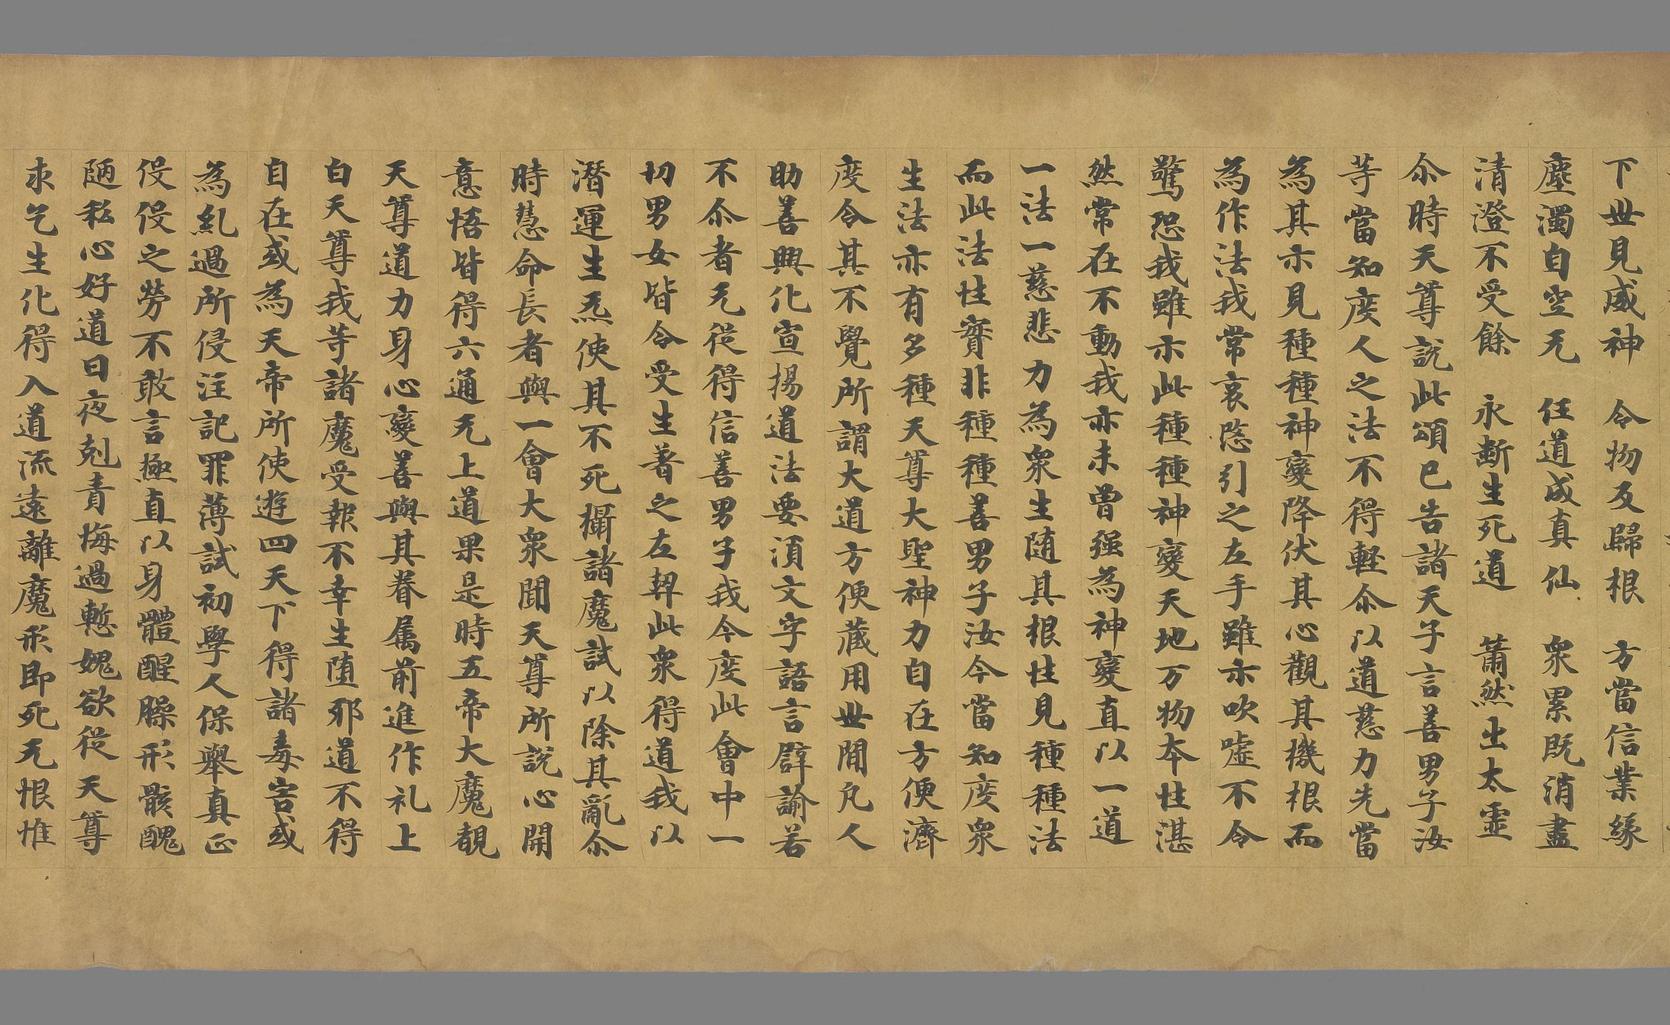 下世見威神　令物反歸根　方當信業緣
塵濁自空无　任道成真仙　衆累既消盡
清澄不受餘　永斷生死道　蕭然出太虛
尒時天尊説此頌已告諸天子言善男子汝
等當知度人之法不得輕尒以道慈力先當
為其示見種種神變降伏其心觀其機根而
為作法我常哀愍引之左手雖示吹嘘不令
驚恐我雖示此種種神變天地万物本性湛
然常在不動我亦未曾强為神變直以一道
一法一慈悲力為衆生随其根性見種種法
而此法性實非種種善男子汝今當知度衆
生法亦有多種天尊大聖神力自在方便濟
度令其不覺所謂大道方便蔵用世間凡人
助善興化宣揚道法要須文字語言譬諭若
不尒者无從得信善男子我今度此會中一
切男女皆令受生著之左契此衆得道我以
潛運生炁使其不死攝諸魔試以除其亂尒
時慧命長者與一會大衆聞天尊所説心開
意悟皆得六通无上道果是時五帝大魔覩
天尊道力身心變善與其眷属前進作礼上
白天尊我等諸魔受報不幸生堕邪道不得
自在或為天帝所使遊四天下得諸毒害或
為糺過所侵注記罪薄試初學人保舉真正
伇伇之勞不敢言極直以身體腥臊形骸醜
陋私心好道日夜剋責悔過慙媿欲從天尊
求乞生化得入道流遠離魔形即死无恨惟